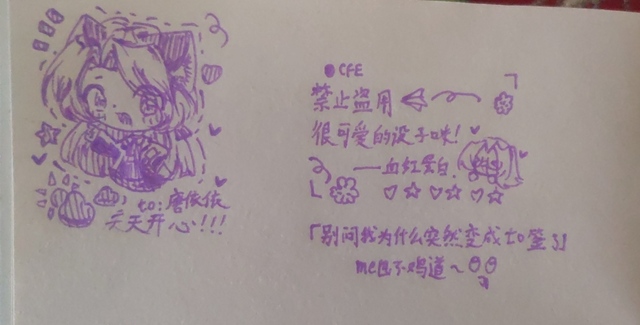 to:唐依依
天天开心!!!
CFE
禁止盗用
很可爱的设子咪!
——血红蛋白.
「别问我为什么突然变成to签了」
me也不鸡道~